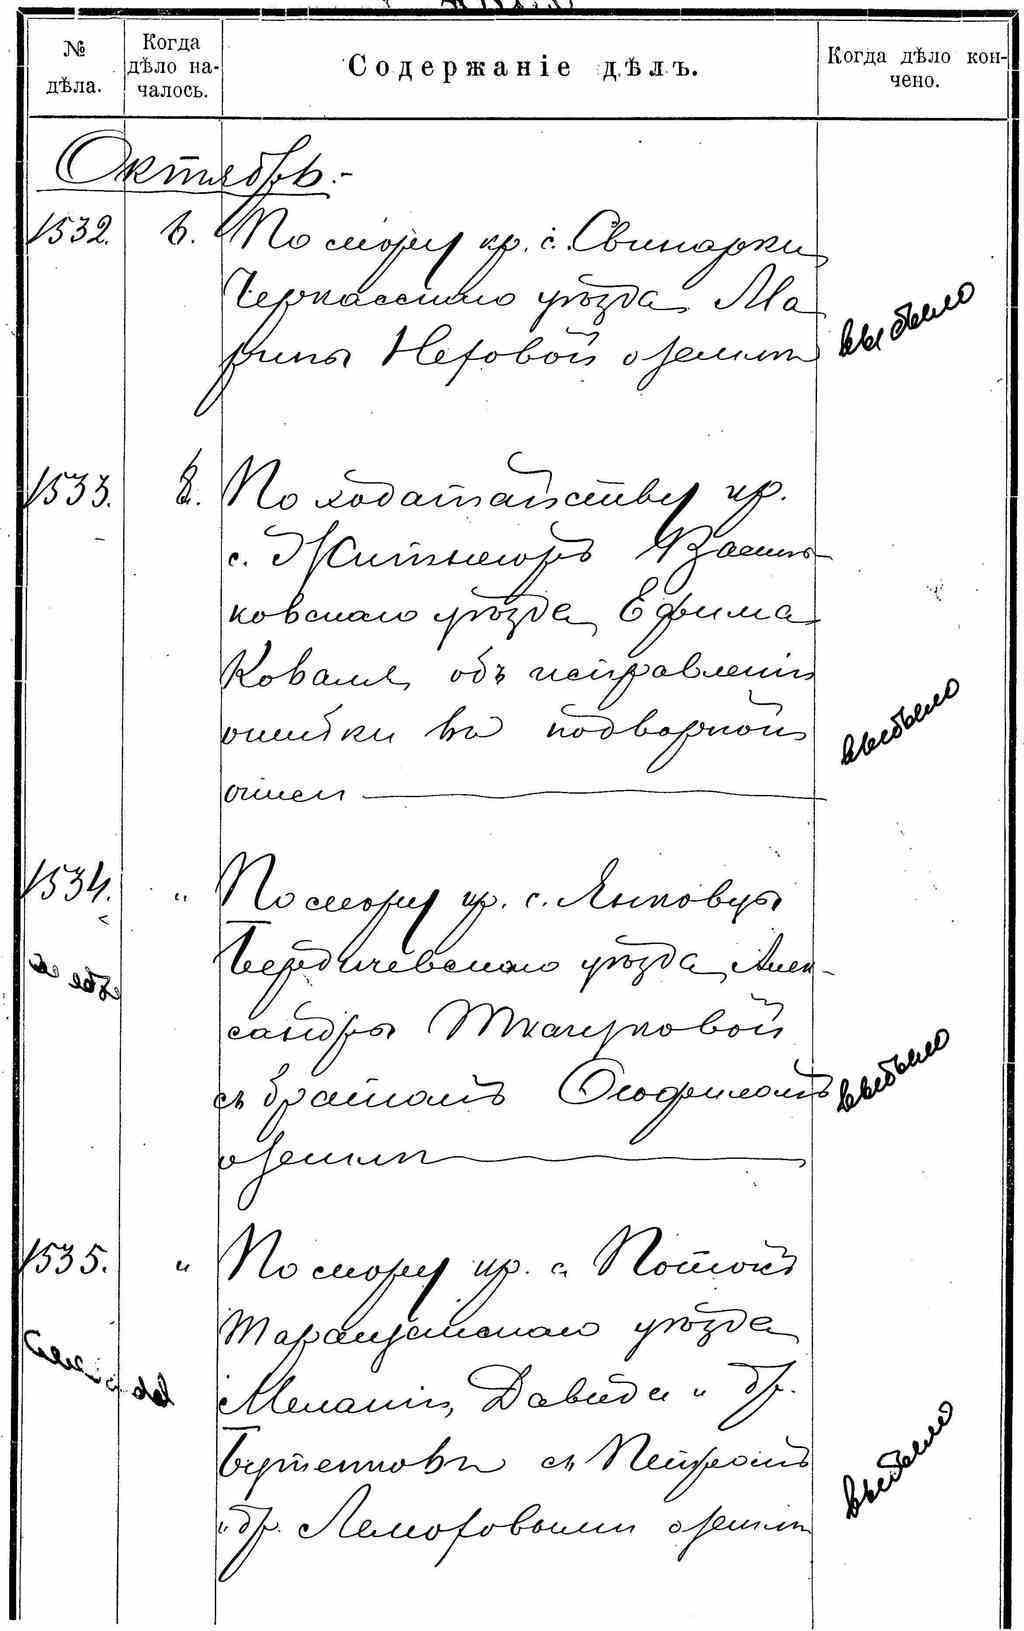 № дѣла.
Когда дѣло на-
чалось.
Содержаніе дѣлъ.
Когда дѣло кон-
чено.
Октябрь.-
1532. 6. По спору кр. с. Свинарки
Черкасскаго уѣзда Ма
рины Неговой о землѣ
выбыло
1533. 8. По ходатайству кр.
с. Житнегоръ Василь
ковскаго уѣзда Ефима
Коваля, объ исправленіи
ошибки въ подворной
описи
выбыло
1534. " По спору кр. с. Янковцы
Бердичевскаго уѣзда Алек-
сандры Ткачуковой
съ братомъ Феофиломъ
о землѣ
выбыло
1535. " По спору кр. с. Потокъ
Таращанскаго уѣзда
Меланіи, Давида и др.
Бутенковъ съ Петромъ
и др. Леморовыми о землѣ
выбыло